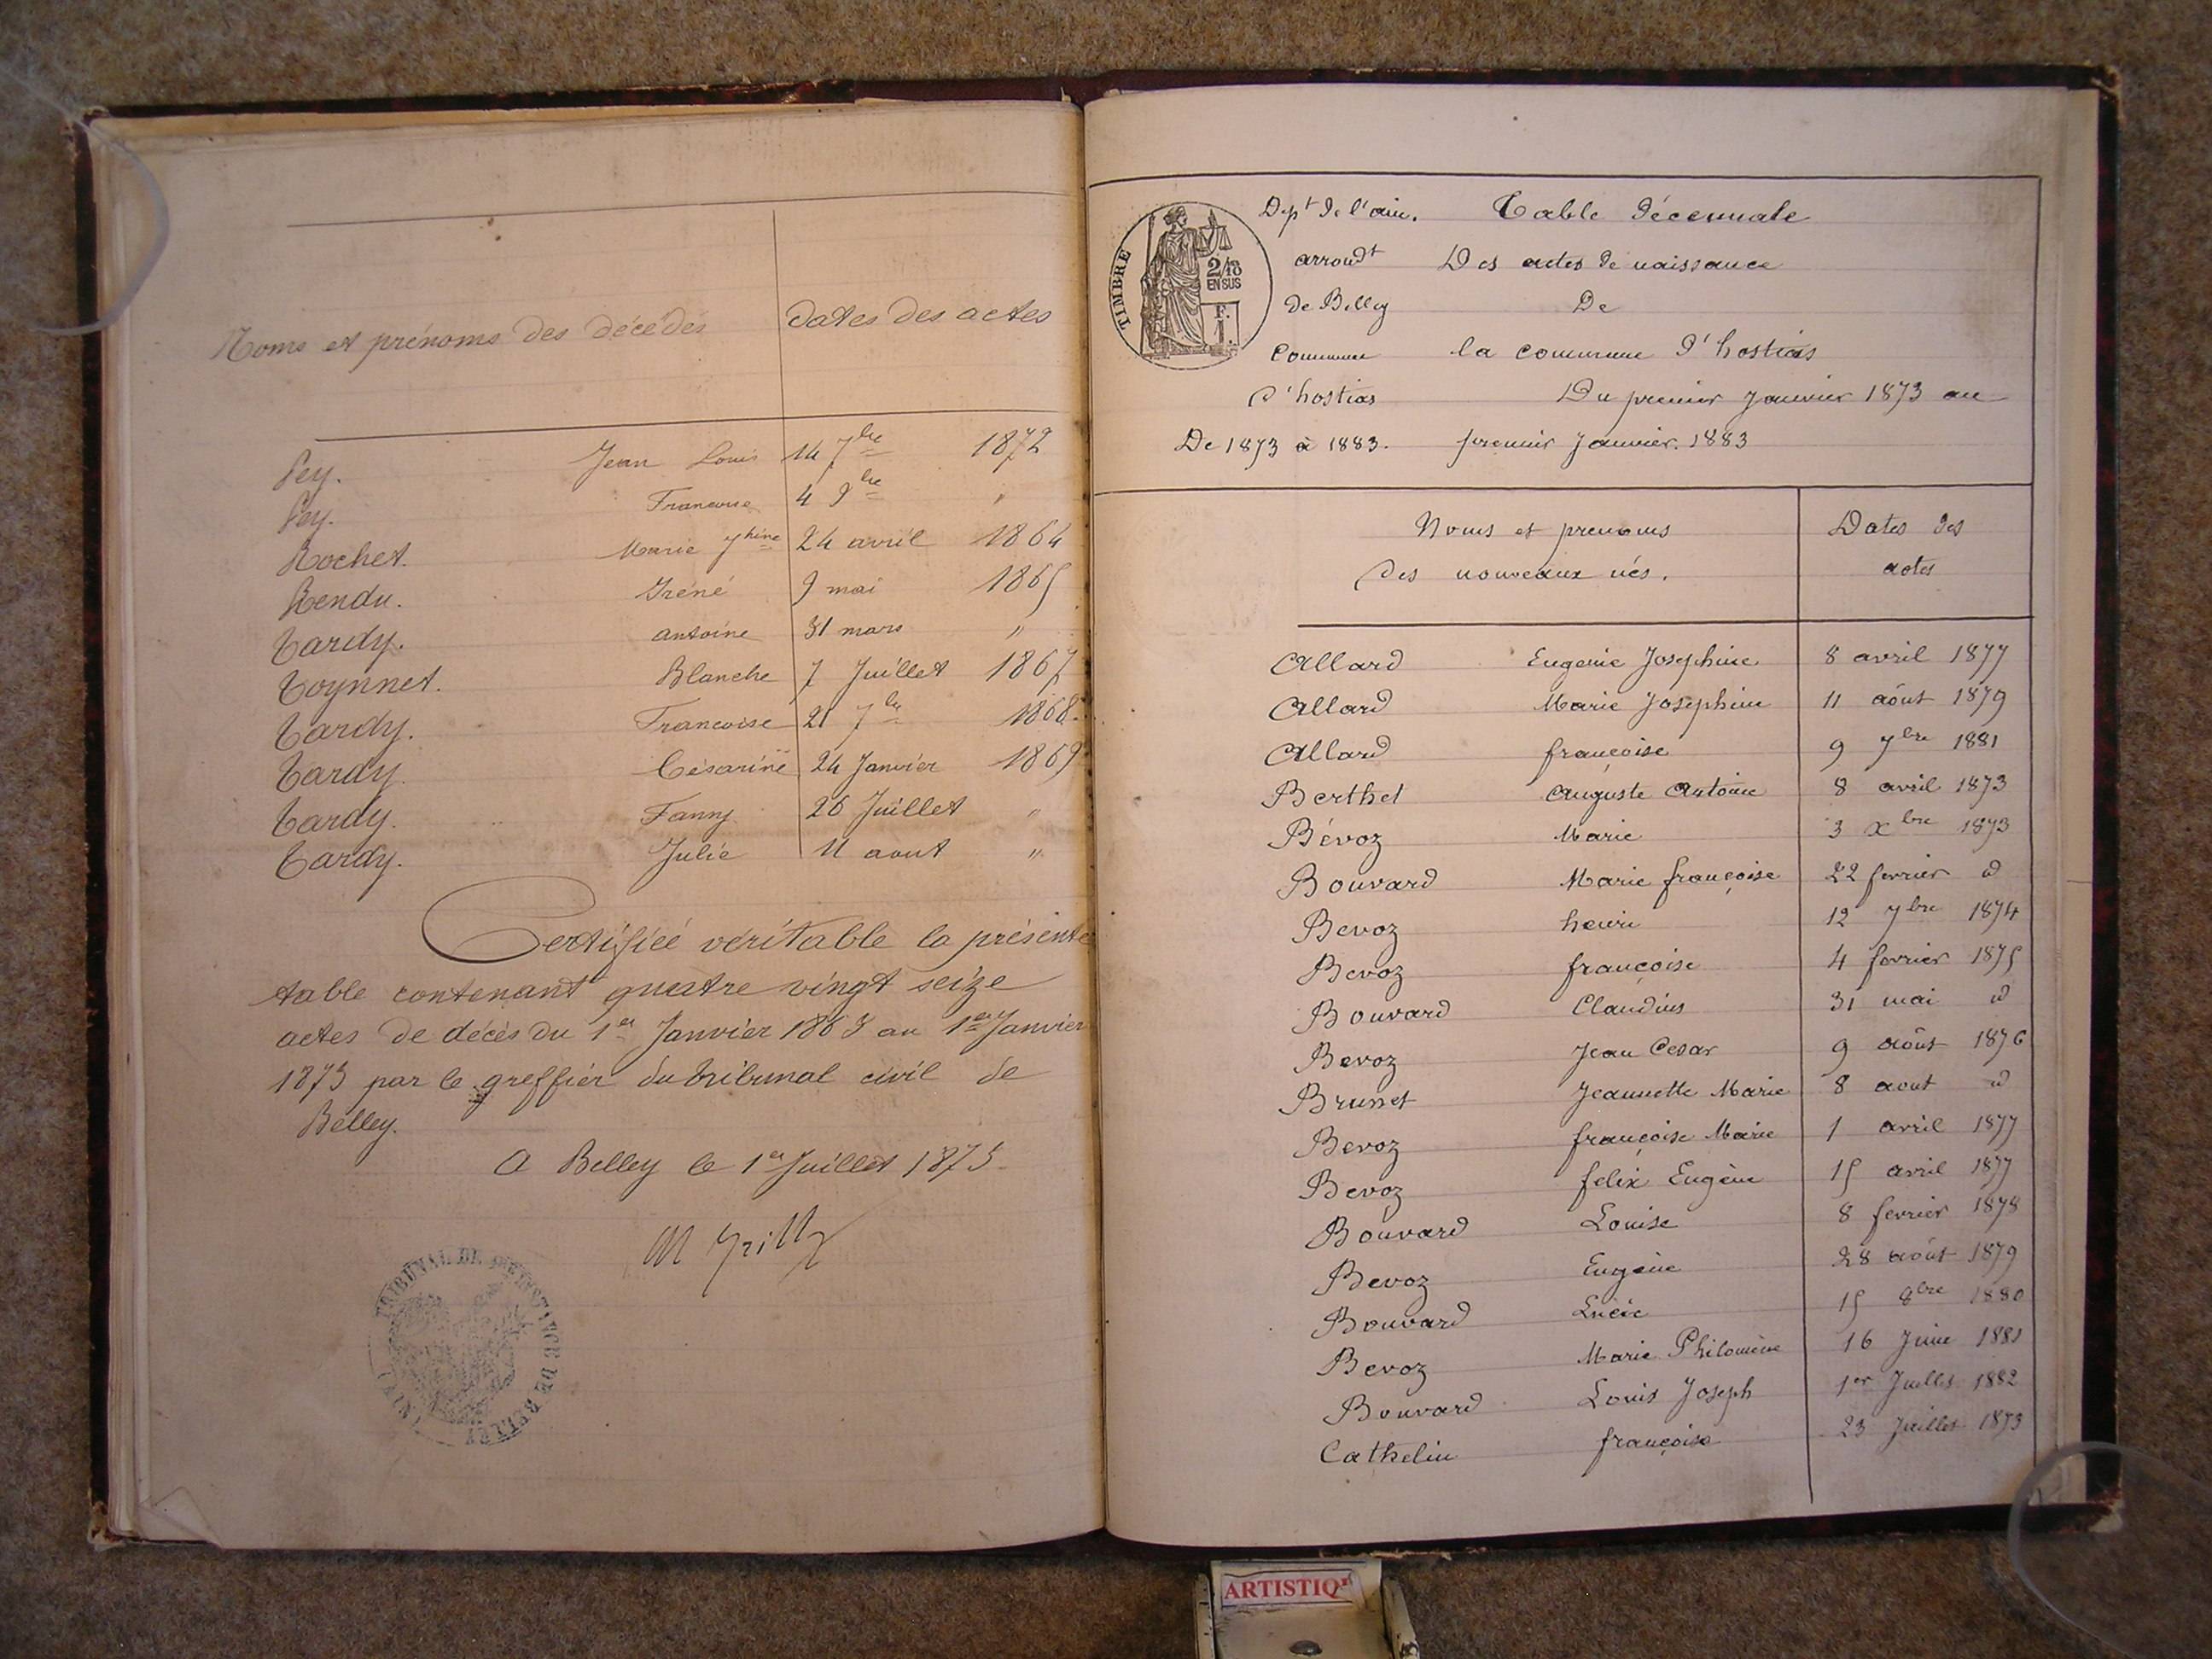 Noms et prénoms des décédés dates des actes
Pey. Jean Louis 14 7bre 1872
Pey. Francoise 4 9bre "
Rochet. Marie Jhine 24 avril 1864
Rendu. Iréné 9 mai 1865
Tardy. antoine 31 mars "
Toynnet. Blanche 7 Juillet 1867
Tardy. Francoise 21 7bre 1868
Tardy. Césarine 24 Janvier 1869
Tardy. Fanny 26 Juillet "
Tardy. Julie 11 aout "
Certifiée véritable la présente
table contenant quatre vingt seize
actes de décès du 1er Janvier 1863 au 1er Janvier
1873 par le greffier du tribunal civil de
Belley.
A Belley le 1er Juillet 1875
TRIBUNAL DE 1RE INSTANCE DE BELLEY
TIMBRE
2/10
EN SUS
F.
1.
Dept de l'ain. Table décennale
arrondt Des actes de naissance
de Belley De
Commune la commune d'hostias
d'hostias Du premier Janvier 1873 au
De 1873 à 1883. premier Janvier. 1883
Noms et prenoms Dates des
des nouveaux nés. actes
Allard Eugenie Josephine 8 avril 1877
Allard Marie Josephine 11 aôut 1879
Allard françoise 9 7bre 1881
Berthet Auguste Antoine 8 avril 1873
Bévoz Marie 3 Xbre 1873
Bouvard Marie françoise 22 fevrier d
Bevoz henri 12 7bre 1874
Bevoz françoise 4 fevrier 1875
Bouvard Claudius 31 mai d
Bevoz Jean Cesar 9 aôut 1876
Brunet Jeannette Marie 8 aout d
Bevoz françoise Marie 1 avril 1877
Bevoz felix Eugène 15 avril 1877
Bouvard Louise 8 fevrier 1878
Bevoz Eugène 28 aôut 1879
Bouvard Lucie 15 8bre 1880
Bevoz Marie Philomène 16 Juin 1881
Bouvard Louis Joseph 1er Juillet 1882
Cathelin françoise 23 Juillet 1873
ARTISTIQ